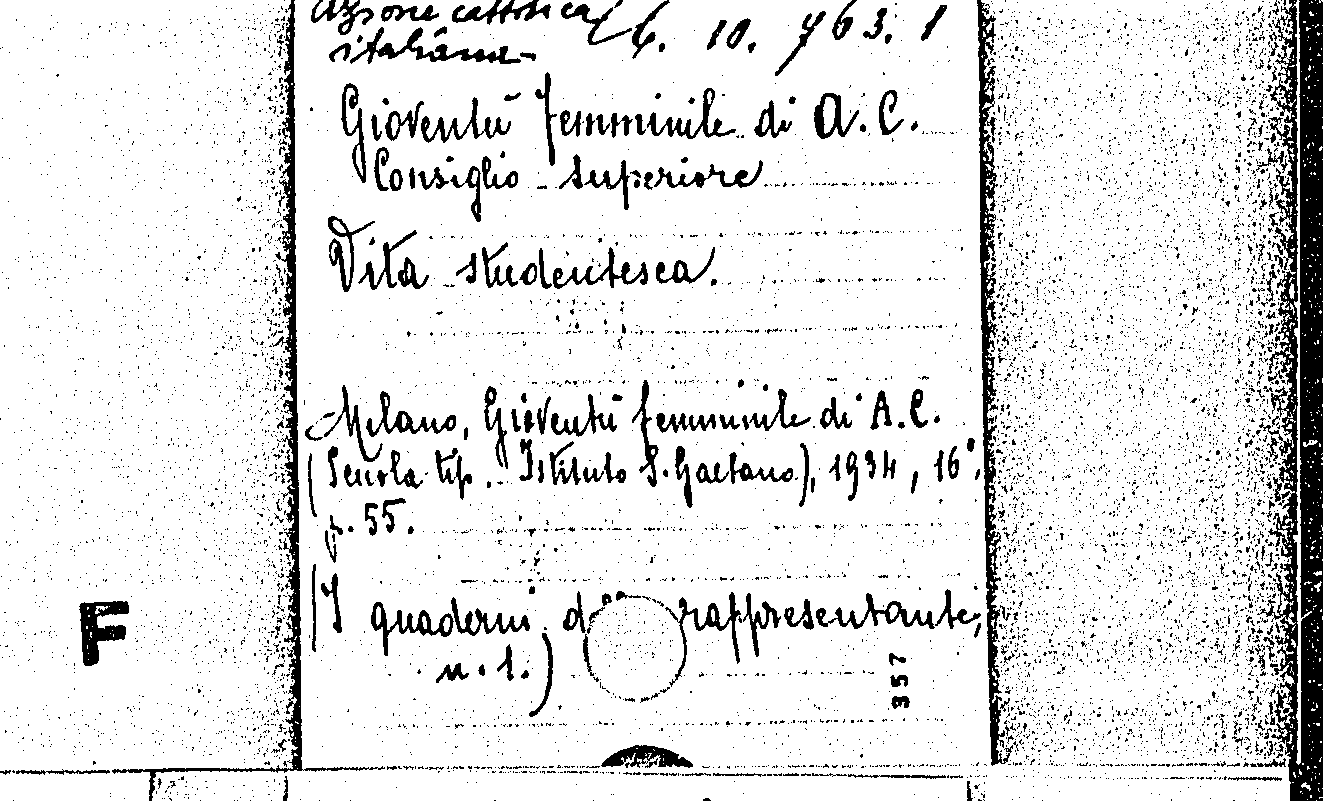 Azione cattolica 6. 10. 763. 1
italiana
Gioventù femminile di A.C.
Consiglio superiore
Vita studentesca.
Milano, Gioventù femminile di A.C.
(Scuola tip. Istituto S. Gaetano), 1934, 16°,
p. 55.
(I quaderni rappresentante;
n. 1.)
F
357